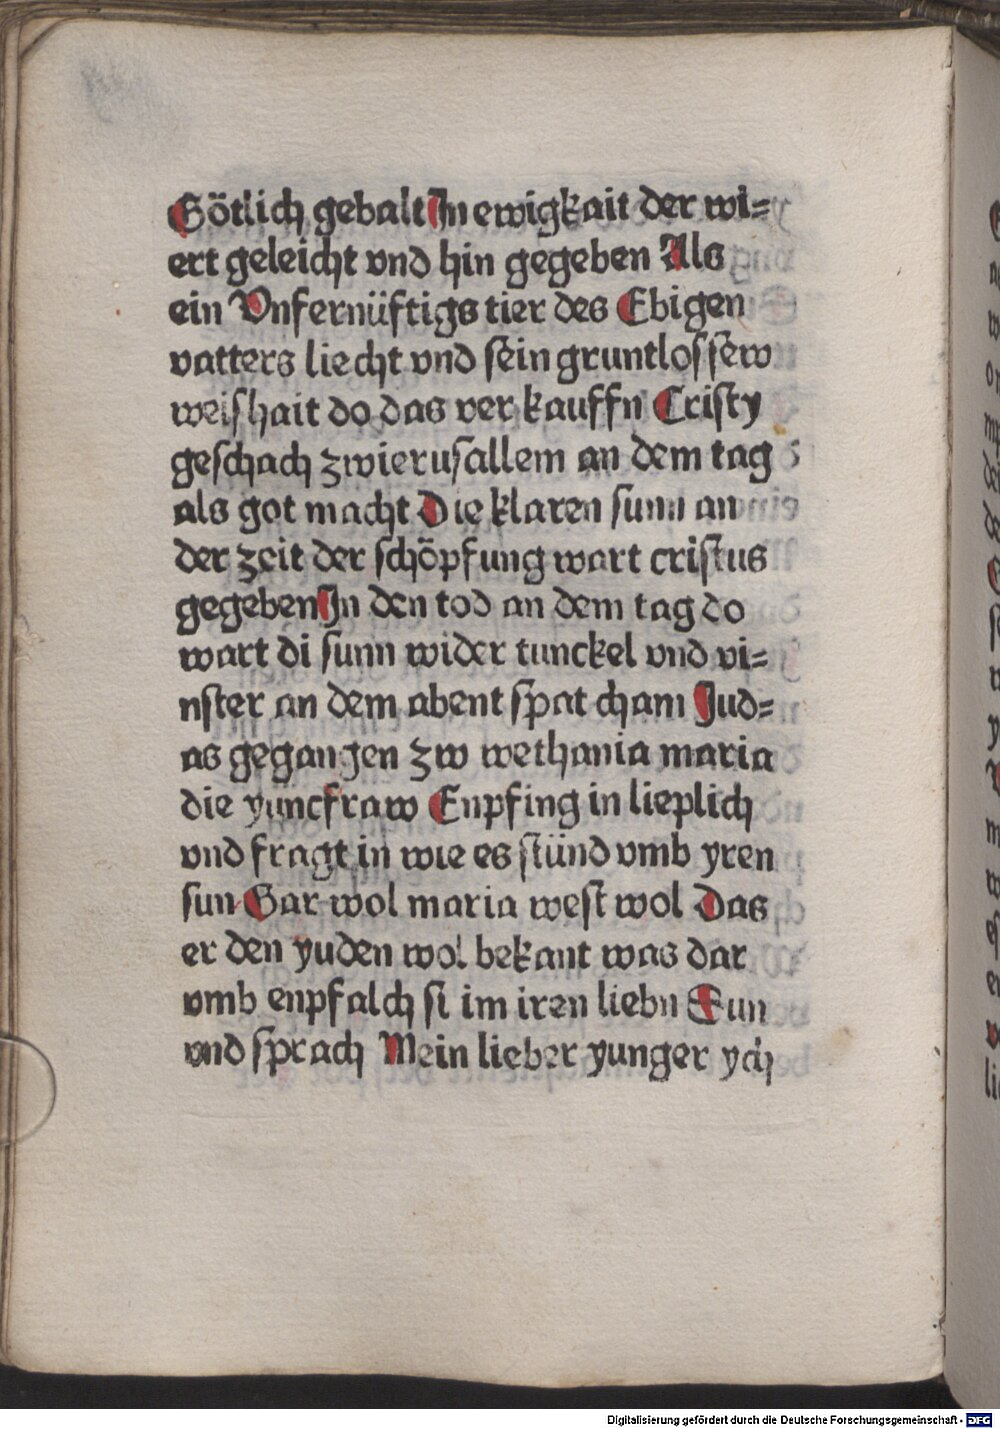 Götlich gebalt In ewigkait der wi=
ert geleicht vnd hin gegeben Als
ein Vnfernüftigs tier des Ebigen
vatters liecht vnd sein gruntlossew
weishait do das ver kauffn Cristy
geschach zwierusallem an dem tag
als got macht Die klaren sunn an
der zeit der schöpfung wart cristus
gegeben In den tod an dem tag do
wart di sunn wider tunckel vnd vi=
nster an dem abent spat cham Jud=
as gegangen zw wethania maria
die yuncfraw Enpfing in lieplich
vnd fragt in wie es stünd vmb yren
sun Gar wol maria west wol Das
er den yuden wol bekant was dar
vmb enpfalch si im iren liebn Sun
vnd sprach Mein lieber yunger ych
Digitalisierung gefördert durch die Deutsche Forschungsgemeinschaft - DFG